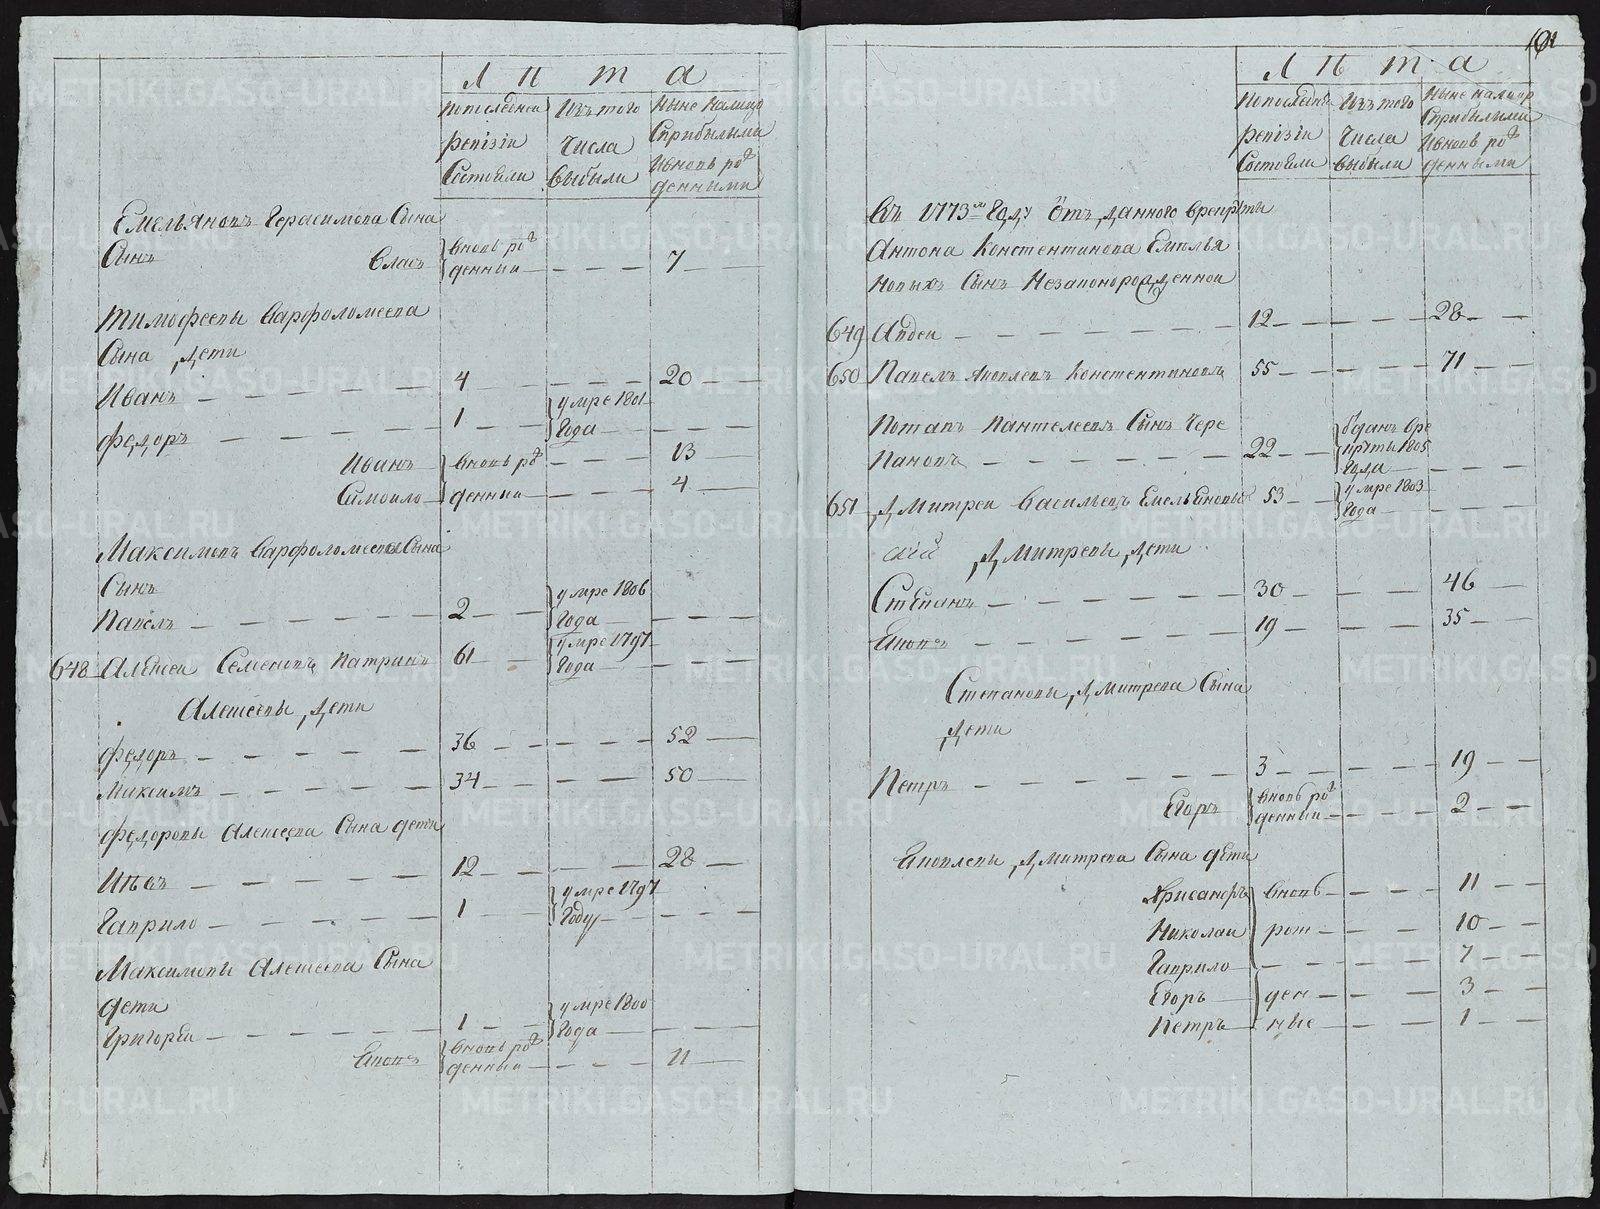 Лѣта
Попоследнеи ревізіи Состояли
Изътого Числа Выбыли
Ныне налицо Сприбылыми Ивновь рожденными
Емельяновъ Герасимова Сына
Сынъ Власъ вновь рожденныи 7
Тимофеевы Варфоломеева
Сына дети
Иванъ 4 20
Федоръ 1 умре 1801 Года
Иванъ вновь ро 13
Самоило жденныи 4
Максимовъ Варфоломеева Сына
Сынъ
Павелъ 2 умре 1806 Года
648 Алексеи Семеновъ Патринъ 61 умре 1797 Года
Алексеевы дети
Федоръ 36 52
Максимъ 34 50
Федоровы Алексеева Сына дети
Ивъвъ 12 28
Гаврило 1 умре 1797 Году
Максимовы Алексеева Сына
дети
Григореи 1 умре 1800 Года
Яковъ вновь рожденныи 11
Лѣта
Попоследнеи ревізіи Состояли
Изътого Числа Выбыли
Ныне налицо Сприбылыми Ивновь рожденными
Въ 1773м Году Отъ данного врекруты
Антона Констентинова Емелья
новыхъ Сынъ Незаконорожденной
649 Авдеи 12 28
650 Павелъ Яковлевъ Констентиновъ 55 71
Потапъ Пантелеевъ Сынъ Чере
пановъ 22 отданъ вре круты 1805 Года
651 Дмитреи Васильевъ Емельяновы 53 умре 1803 Года
Дмитревы дети
Степанъ 30 46
Яковъ 19 35
Степановы Дмитрева Сына
дети
Петръ 3 19
Егоръ вновь рожденныи 2
Яковлевы Дмитрева Сына дети
Хрисанфъ вновь 11
Николаи рож 10
Гаврило 7
Егоръ ден 3
Петръ ные 1
METRIKI.GASO-URAL.RU